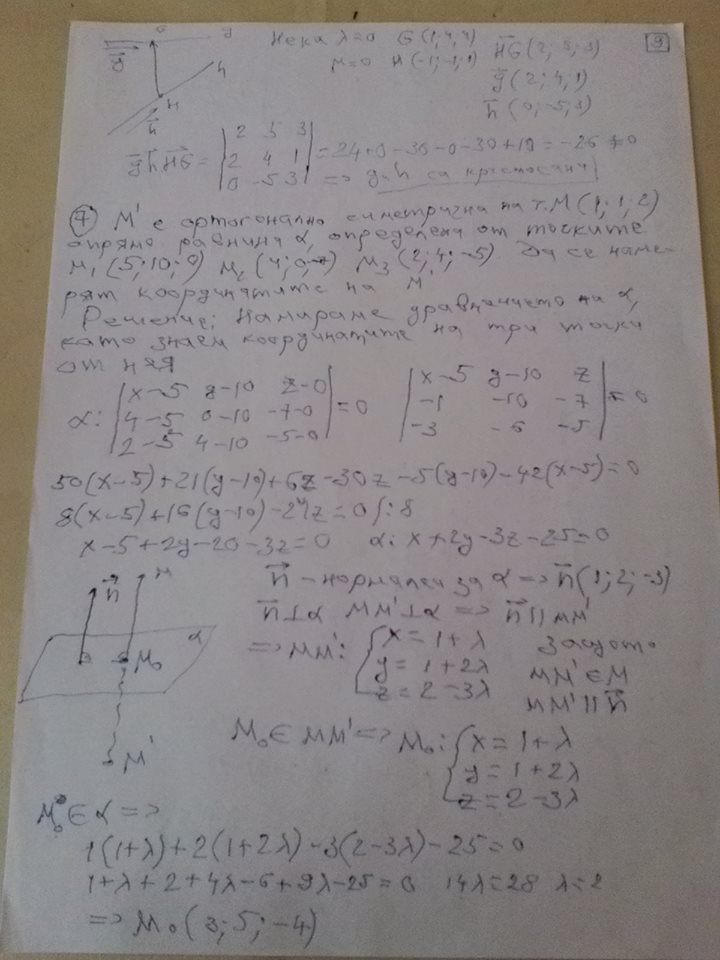 9
Нека λ=0 G(1; 4; 4)
μ=0 H(-1; -1; 1)
HG(2; 5; 3)
g(2; 4; 1)
h(0; -5; 3)
G g
g h H h
g h HG = | 2 5 3 |
| 2 4 1 | = 24+0-30-0-30+10=-26≠0
| 0 -5 3 | => g и h са кръстосани
7 M' е ортогонално симетрична на т. M(1; 1; 2)
спрямо равнина α, определена от точките
M₁(5; 10; 0) M₂(4; 0; -7) M₃(2; 4; -5) Да се наме-
рят координатите на M'
Решение: Намираме уравнението на α,
като знаем координатите на три точки
от нея
α: | x-5 y-10 z-0 | | x-5 y-10 z |
| 4-5 0-10 -7-0 | =0 | -1 -10 -7 | =0
| 2-5 4-10 -5-0 | | -3 -6 -5 |
50(x-5)+21(y-10)+6z-30z-5(y-10)-42(x-5)=0
8(x-5)+16(y-10)-24z=0 /:8
x-5+2y-20-3z=0 α: x+2y-3z-25=0
n M α M₀ M'
n - нормален за α => n(1; 2; -3)
n⊥α MM'⊥α => n||MM'
=> MM': { x=1+λ защото
y=1+2λ MM'∈M
z=2-3λ MM'||n
M₀∈MM' => M₀: { x=1+λ
y=1+2λ
z=2-3λ
M₀∈α =>
1(1+λ)+2(1+2λ)-3(2-3λ)-25=0
1+λ+2+4λ-6+9λ-25=0 14λ=28 λ=2
=> M₀(3; 5; -4)